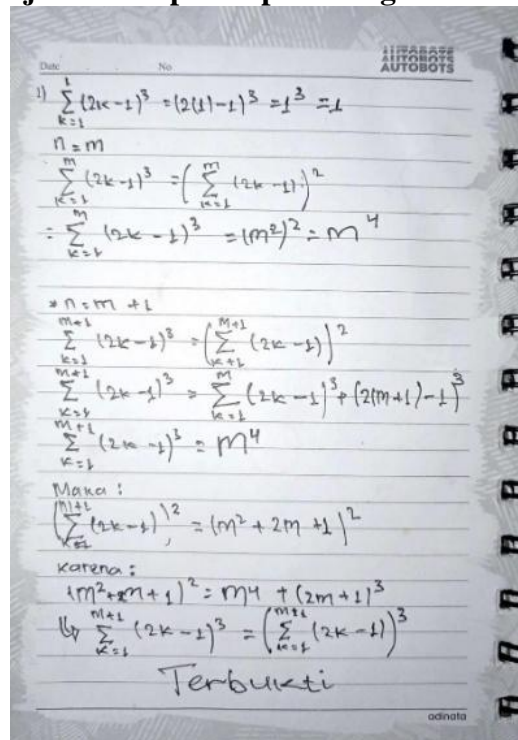 AUTOBOTS
AUTOBOTS
AUTOBOTS
Date No
1) 1 ∑ k=1 (2k-1)^3 = (2(1)-1)^3 = 1^3 = 1
n = m
m ∑ k=1 (2k-1)^3 = (m ∑ k=1 (2k-1))^2
= m ∑ k=1 (2k-1)^3 = (m^2)^2 = m^4
* n = m + 1
m+1 ∑ k=1 (2k-1)^3 = (m+1 ∑ k+1 (2k-1))^2
m+1 ∑ k=1 (2k-1)^3 = m ∑ k=1 (2k-1)^3 + (2(m+1)-1)^3
m+1 ∑ k=1 (2k-1)^3 = m^4
Maka :
(m+1 ∑ k=1 (2k-1))^2 = (m^2 + 2m + 1)^2
karena :
(m^2+2m+1)^2 = m4 + (2m+1)^3
↳ m+1 ∑ k=1 (2k-1)^3 = (m+1 ∑ k=1 (2k-1))^3
Terbukti
adinata